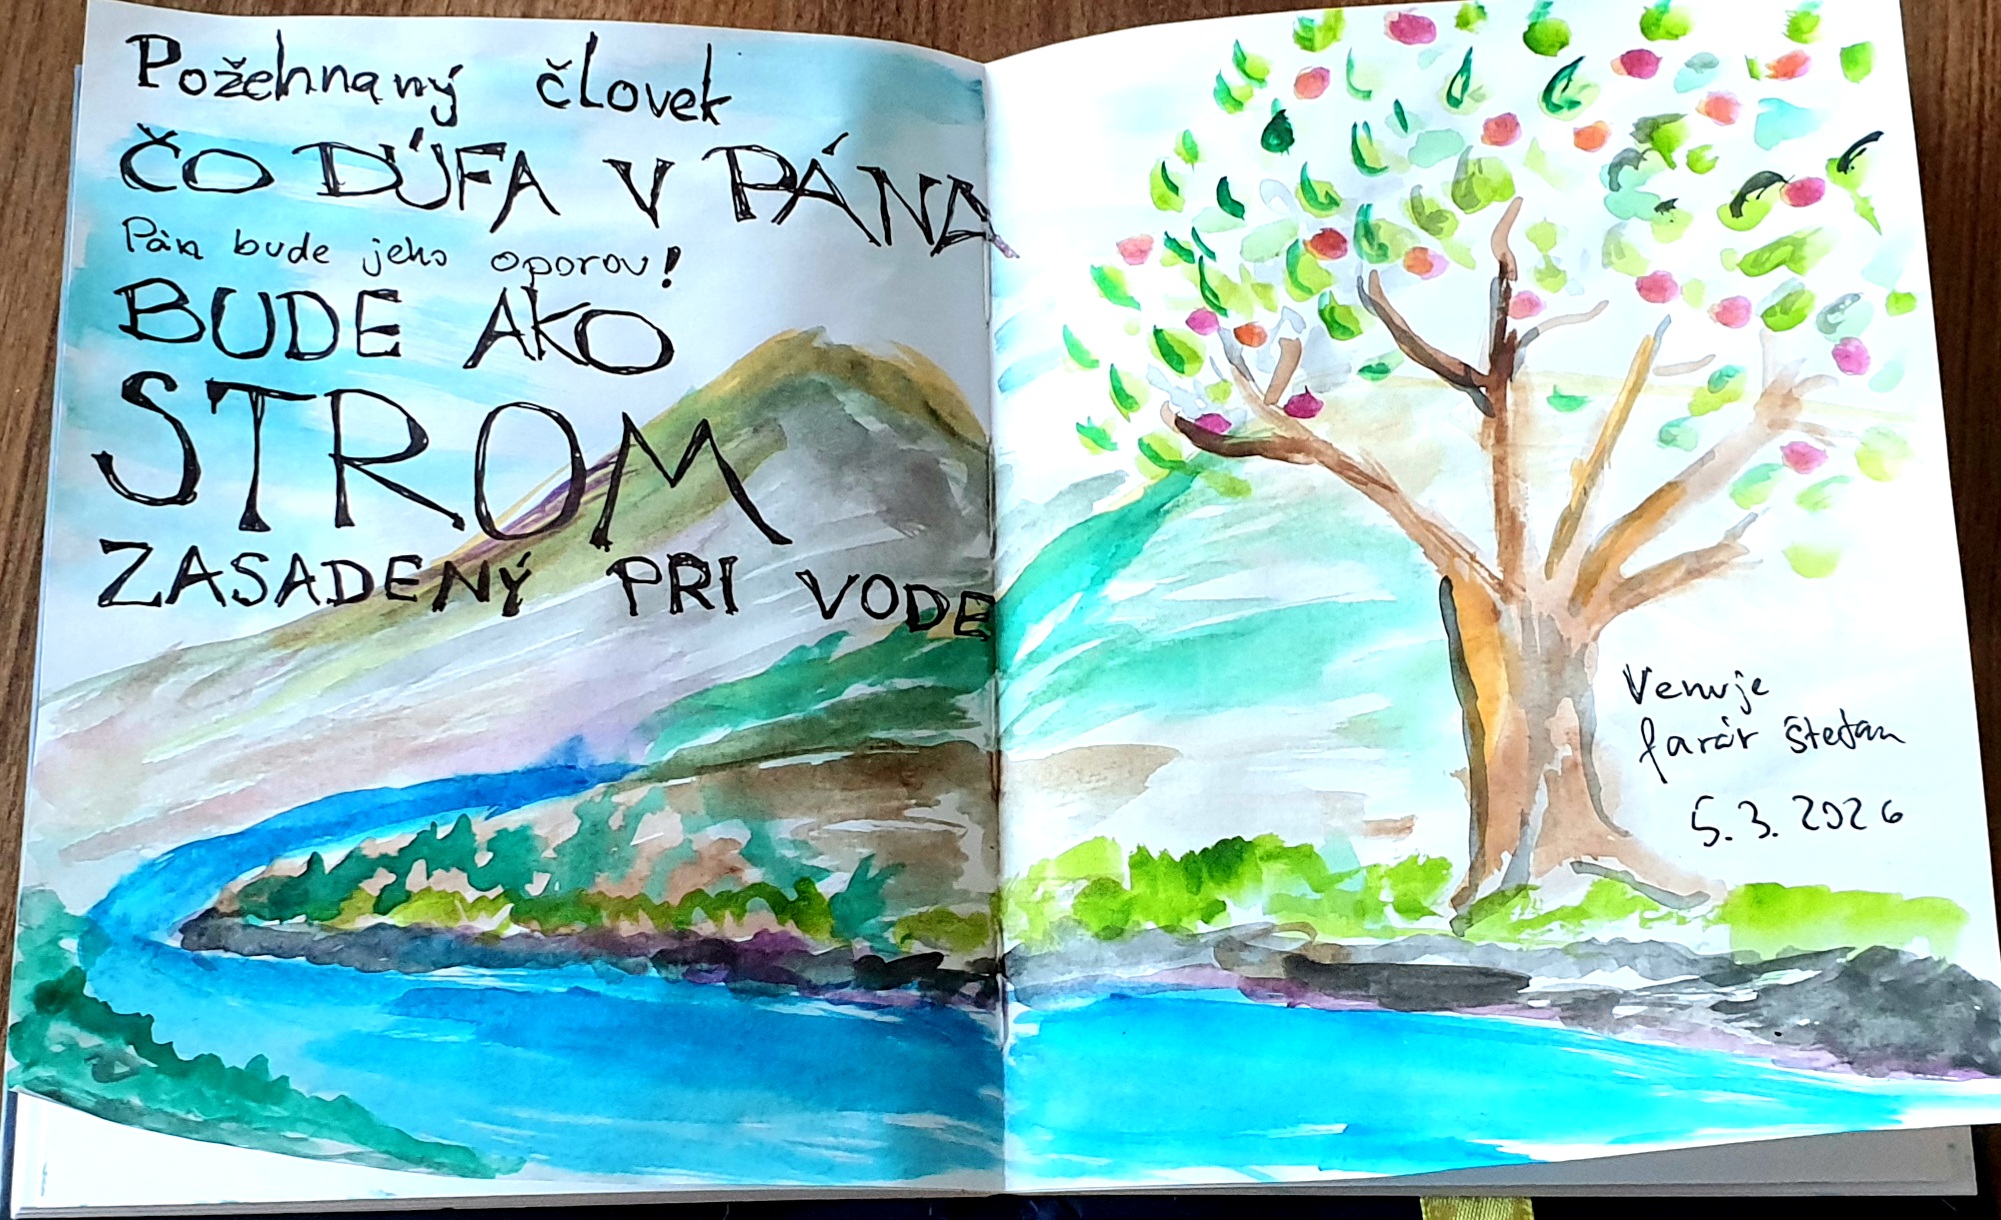 Požehnaný človek
ČO DÚFA V PÁNA
Pán bude jeho oporou!
BUDE AKO
STROM
ZASADENÝ PRI VODE
Venuje
farár Štefan
5.3.2026